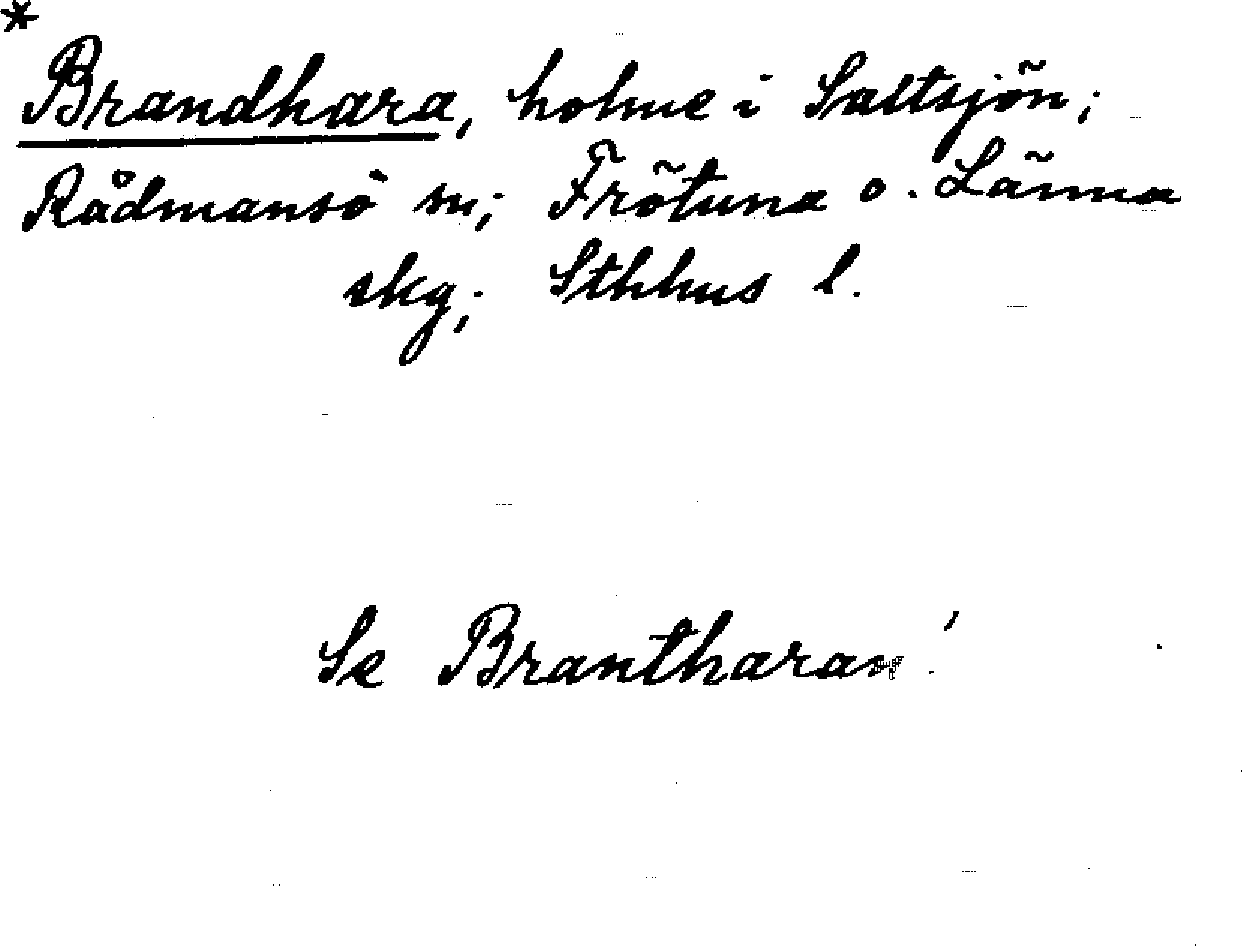 *
Brandhara, holme i Saltsjön;
Rådmansö sn; Frötuna o. Länna
skg; Sthlms l.
Se Brantharan!